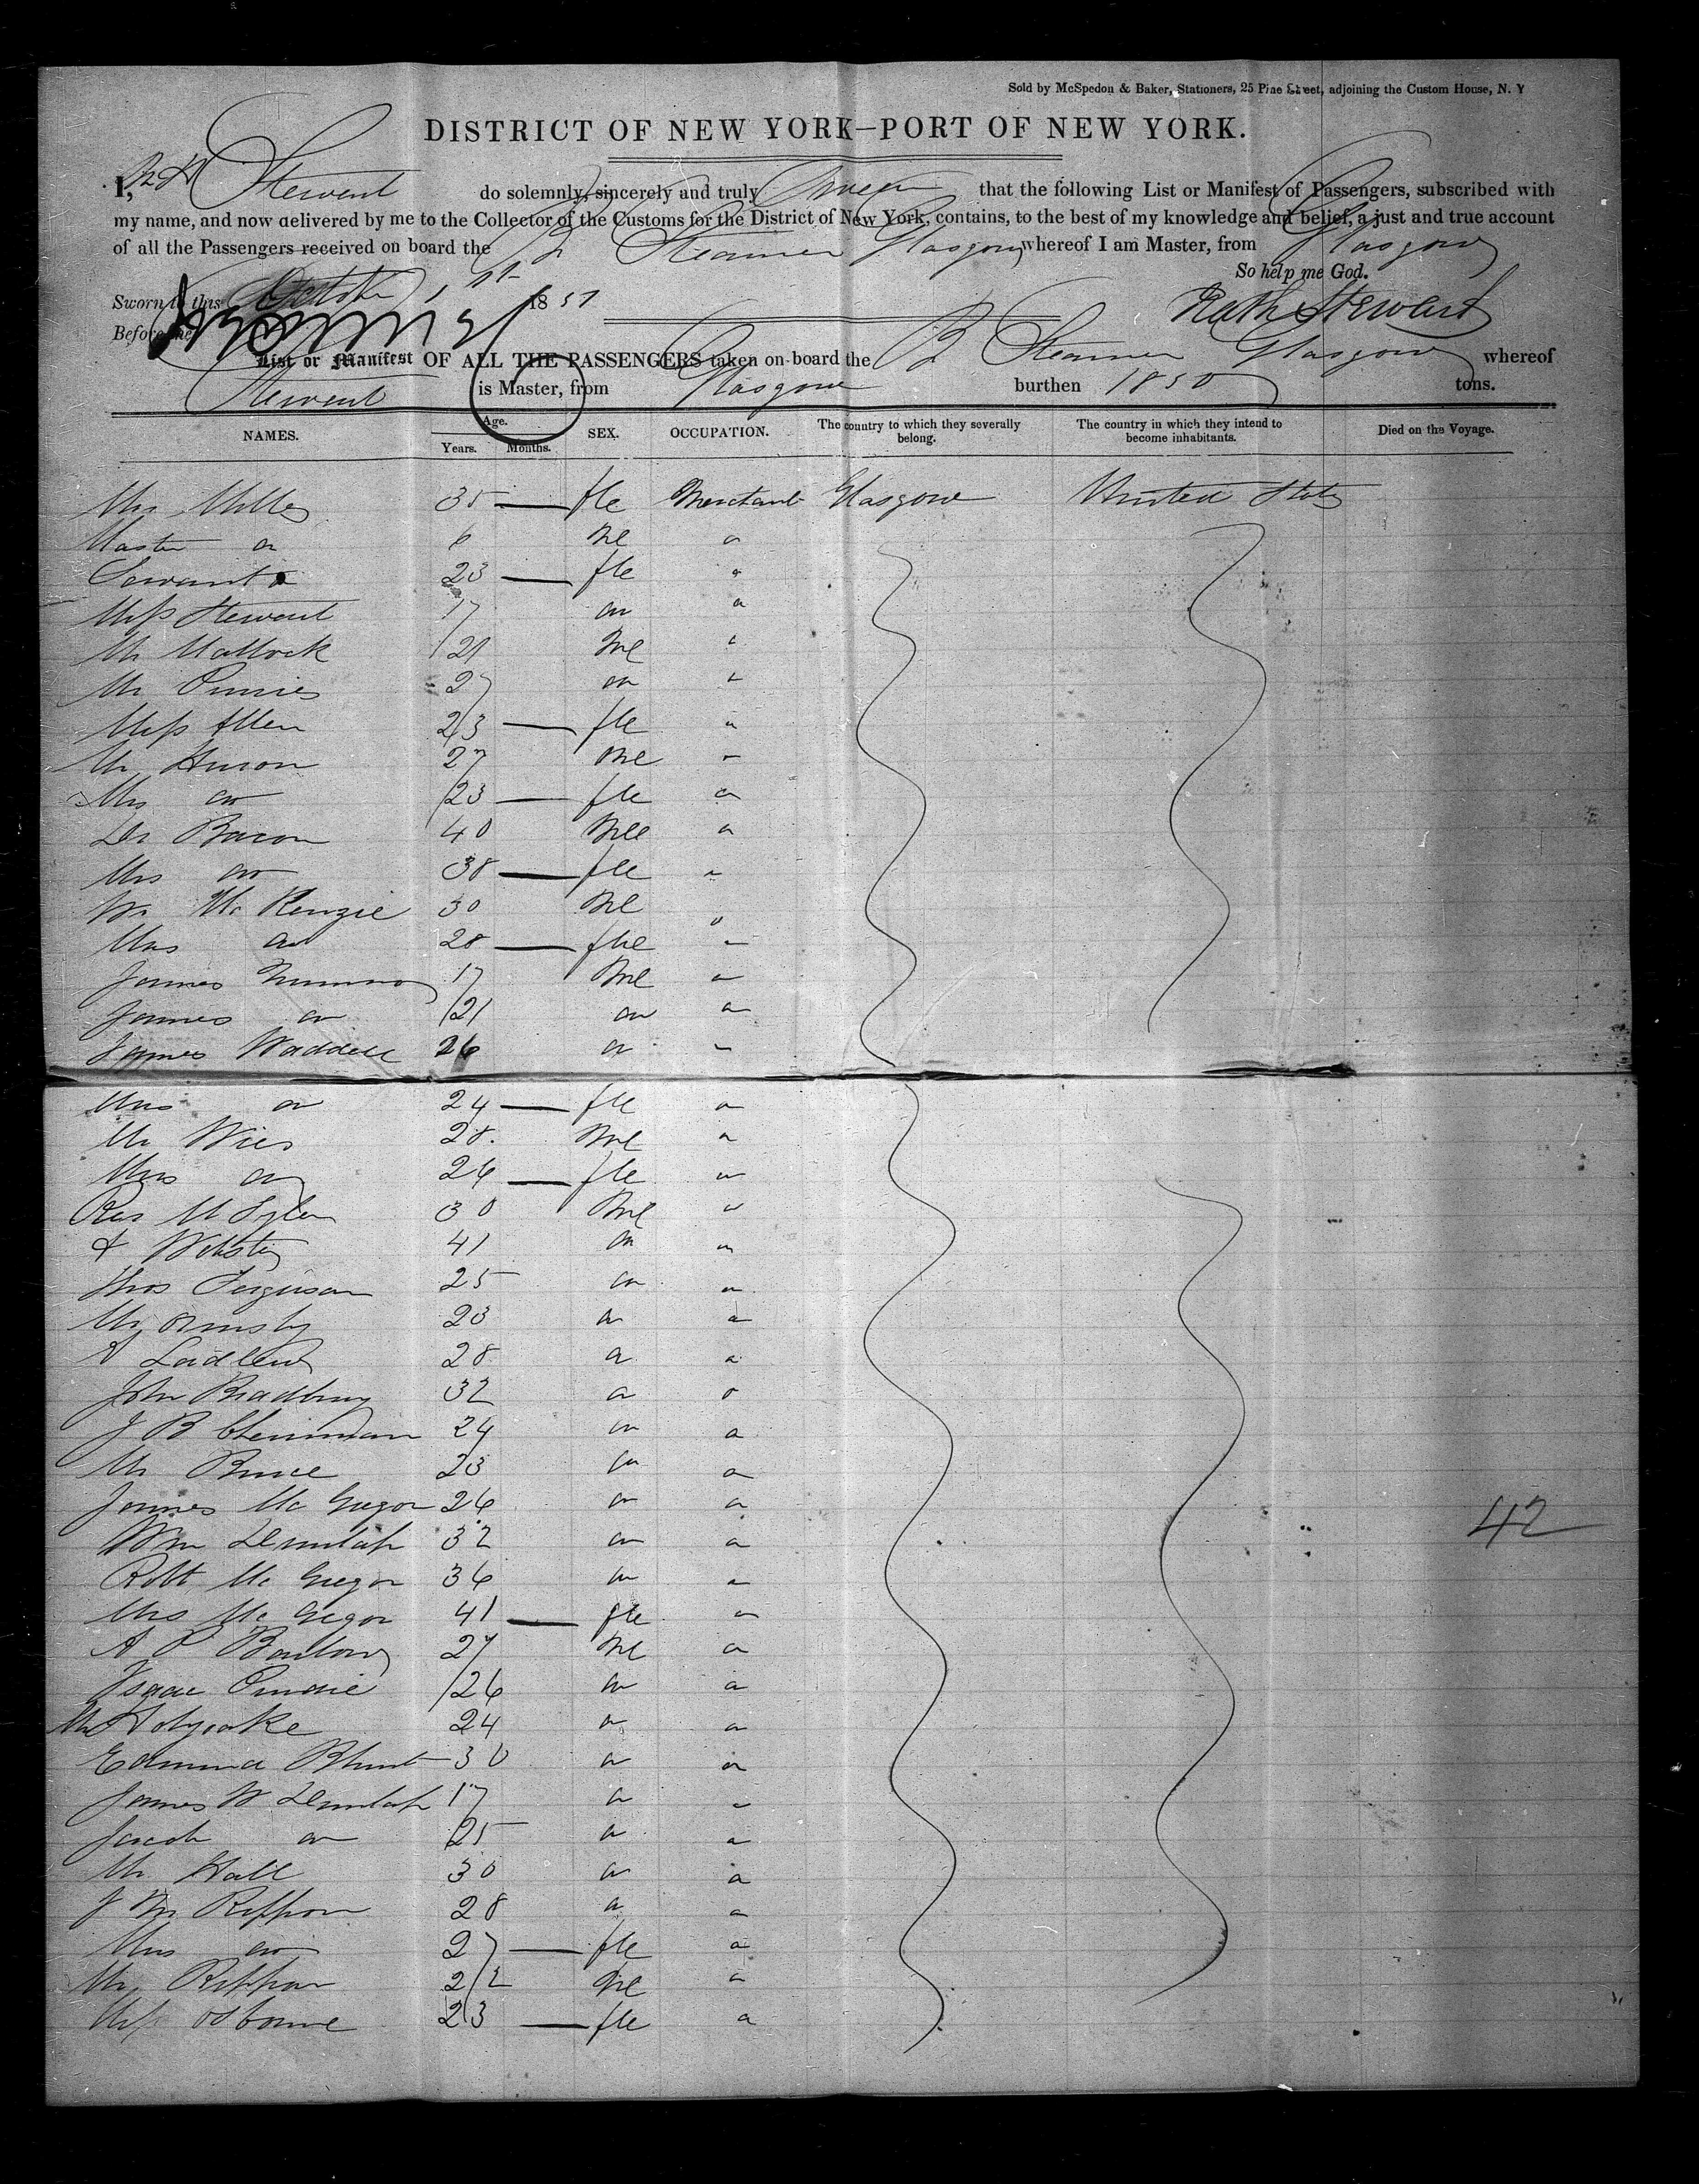 Sold by McSpedon & Baker, Stationers, 25 Pine Street, adjoining the Custom House, N. Y
DISTRICT OF NEW YORK—PORT OF NEW YORK.
I, Stewart do solemnly, sincerely and truly Swear that the following List or Manifest of Passengers, subscribed with
my name, and now delivered by me to the Collector of the Customs for the District of New York, contains, to the best of my knowledge and belief, a just and true account
of all the Passengers received on board the Br Steamer Glasgow whereof I am Master, from Glasgow
So help me God.
Sworn to this October 1st 1851
Before me
List or Manifest OF ALL THE PASSENGERS taken on board the Br Steamer Glasgow whereof
Stewart is Master, from Glasgow burthen 1850 tons.
NAMES. Age. Years. Months. SEX. OCCUPATION. The country to which they severally belong. The country in which they intend to become inhabitants. Died on the Voyage.
Mrs 35 — fle Merchant Glasgow United States
Master " 6 Ml "
Servant 23 — fle "
Miss Stewart 17 " "
Mr 21 Ml "
Mr 27 " "
Miss Allen 23 — fle "
Mr 27 Ml "
Mrs do 23 — fle "
Dr Bacon 40 Mle "
Mrs do 38 — fle "
Mr McKenzie 30 Ml "
Mrs do 28 — fle "
James Nimmo 17 Ml "
James do 21 " "
James Waddell 26 " "
Mrs do 24 — fle "
Mr 28 Ml "
Mrs do 26 — fle "
Rev 30 Ml "
A Webster 41 " "
Thos Ferguson 25 " "
Mr Ormsby 23 " "
A Laidlaw 28 " "
John Bradbury 32 " "
J B 24 " "
Mr Bruce 23 " "
James McGregor 26 " "
42
Wm Dunlap 32 " "
Robt McGregor 36 " "
Mrs McGregor 41 — fle "
A P Barlow 27 Ml "
Isaac 26 " "
Mr Holyoake 24 " "
Edmund Blunt 30 " "
James W Dunlap 17 " "
Jacob do 25 " "
Mr Hall 30 " "
J M Rippon 28 " "
Mrs do 27 — fle "
Mr Rippon 22 Ml "
Miss Osborne 23 — fle "